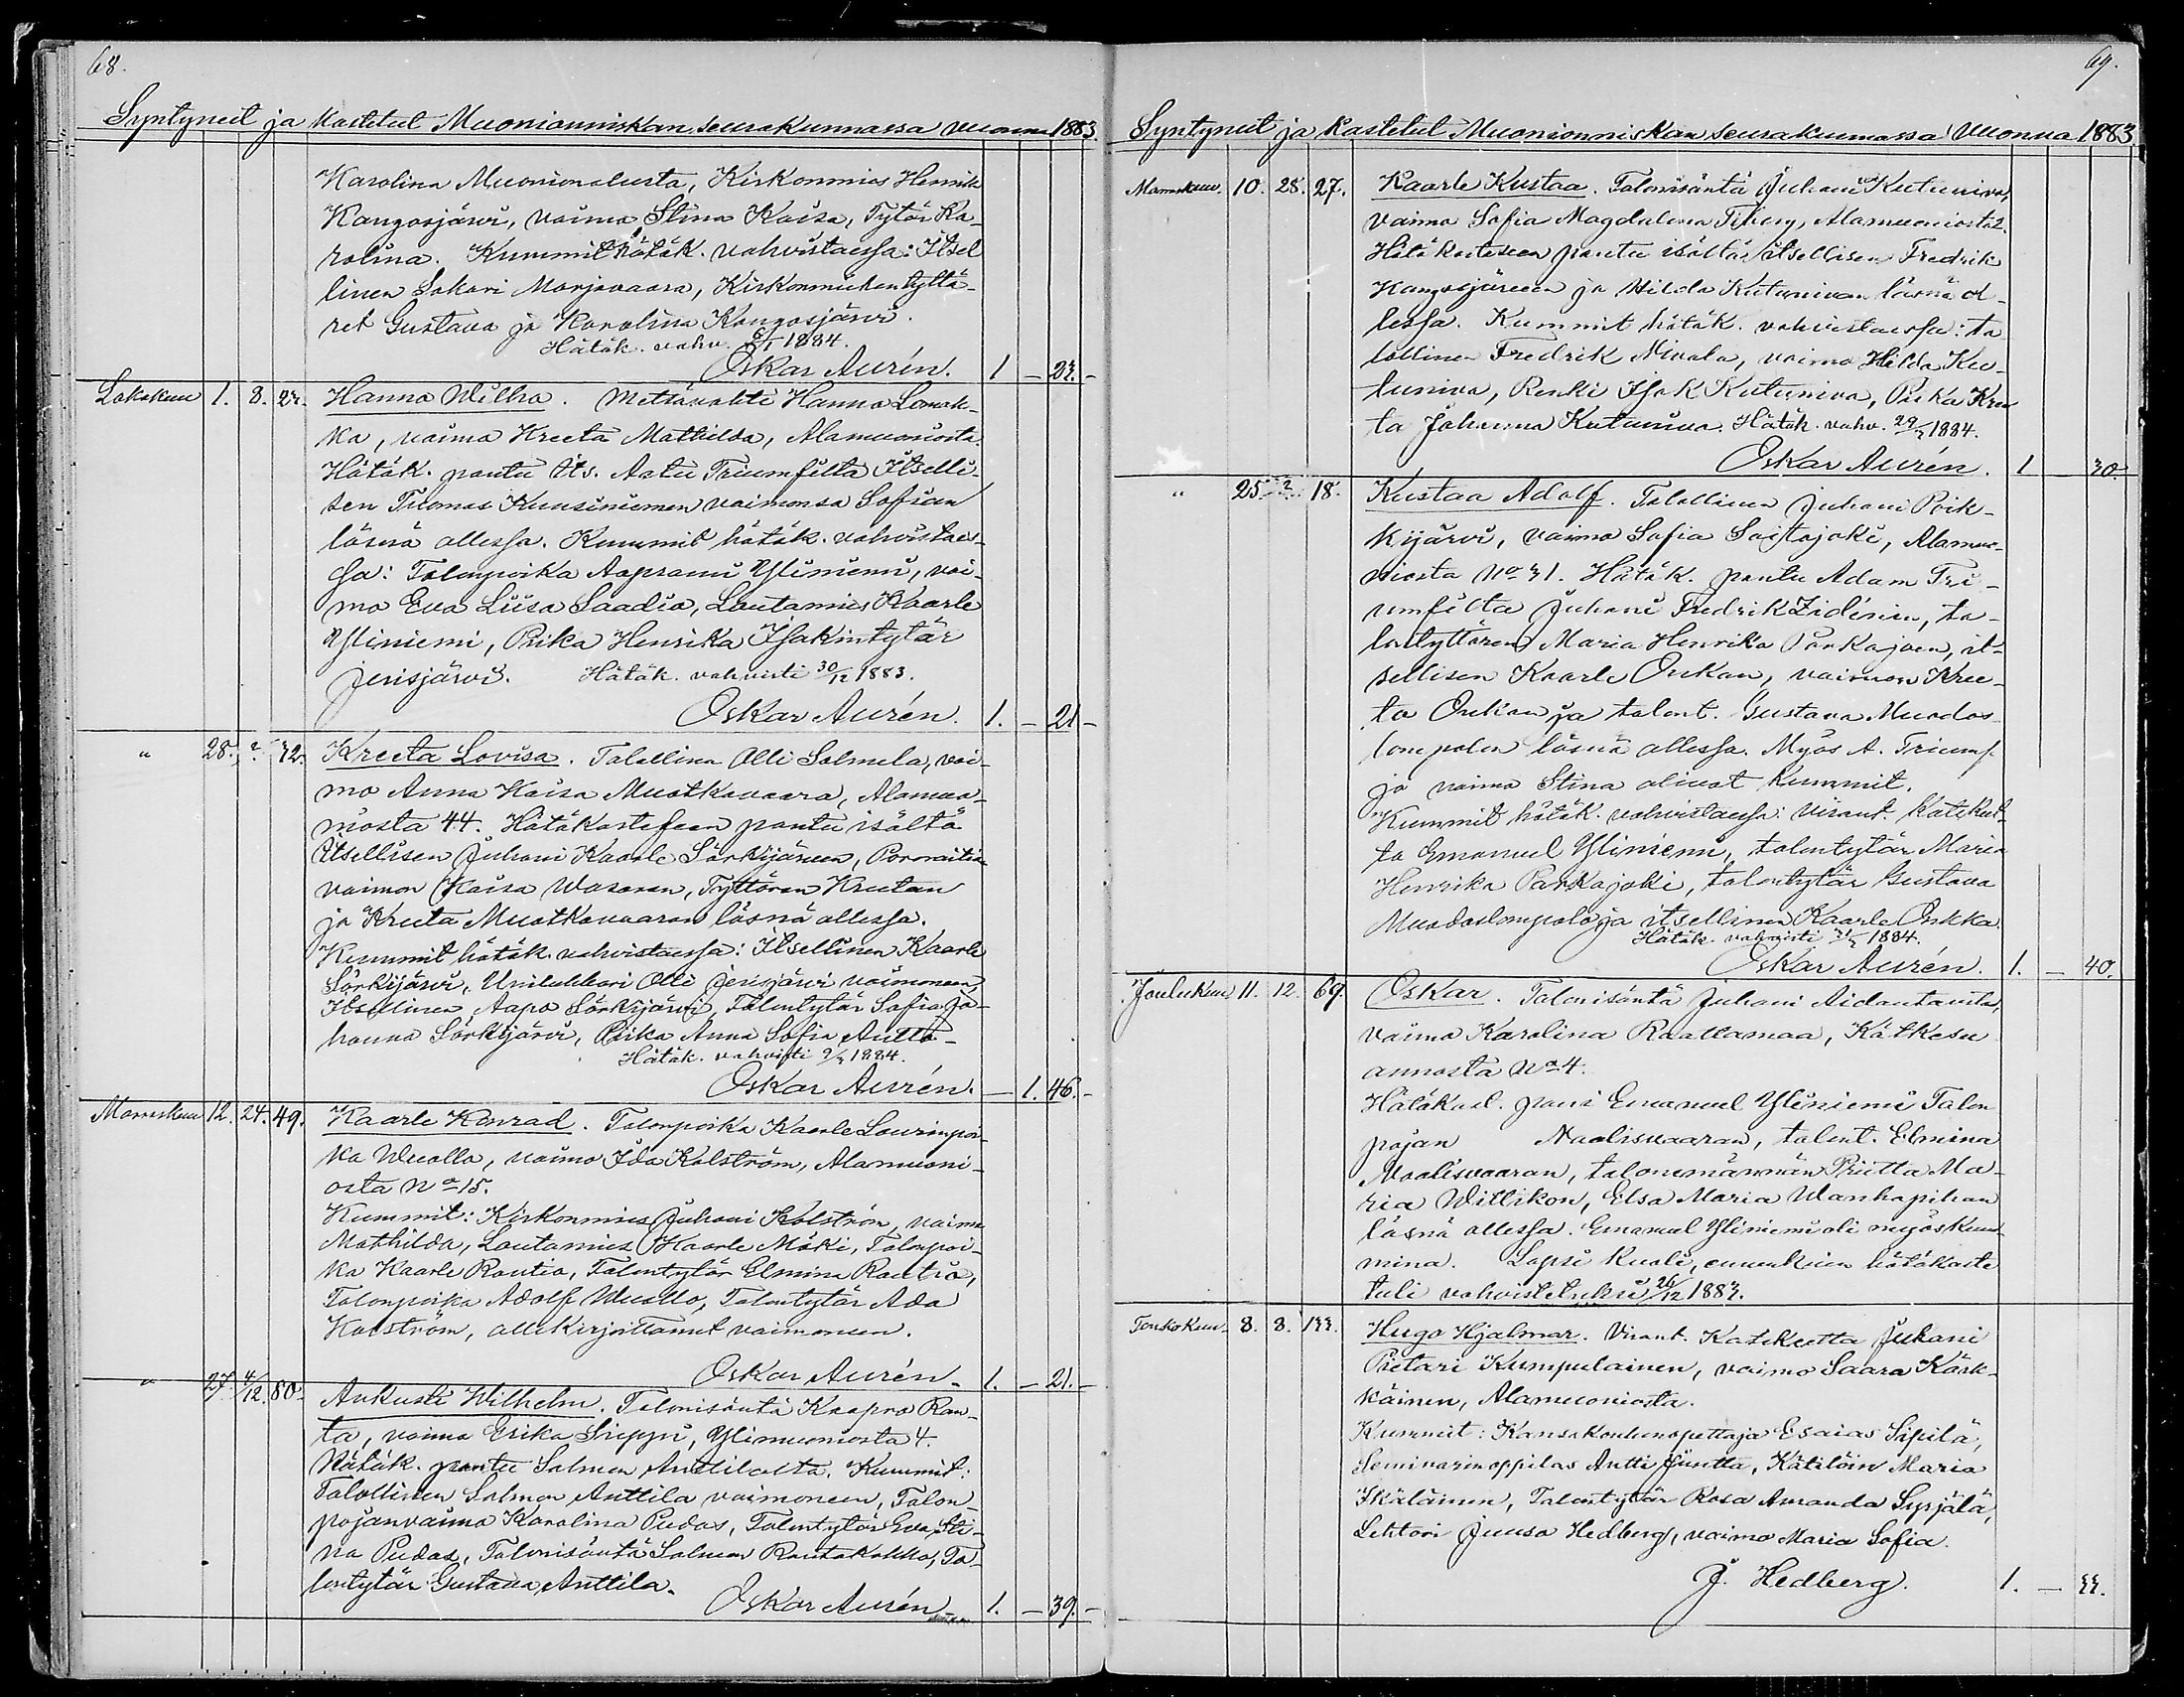 68.
Syntyneet ja kastetut Muonionniskan seurakunnassa vuonna 1883.
Karolina Muonionalusta, Kirkonmies Henrik
Kangosjärvi, vaimo Stina Kaisa, Tytär Ka-
rolina. Kummit hätäk. vahvistaessa: Itsel
linen Sakari Marjavaara, Kirkonmiehen tyttä-
ret Gustava ja Karolina Kangosjärvi.
Hätäk. vahv. 6/1 1884.
Oskar Aurén. 1 - 23. -
Lokakuu 1. 8. 23. Hanna Wilha. Mettävahti Hannu Lomak-
ka, vaimo Kreeta Mathilda, Alamuoniosta.
Hätäk. pantu Its. Aatu Triumfilta Itselli-
sen Tuomas Kuusiniemen vaimonsa Sofian
läsnä ollessa. Kummit hätäk. vahvistaes-
sa: Talonpoika Aaprami Yliniemi, vai-
mo Eva Liisa Saadio, Lautamies Kaarle
Yliniemi, Piika Henrika Isakintytär
Jerisjärvi. Hätäk. vahvisti 30/12 1883.
Oskar Aurén. 1. - 21 -
" 28. ? 32. Kreeta Lovisa. Talollinen Olli Salmela, vai-
mo Anna Kaisa Muotkavaara, Alamuo-
niosta 44. Hätäkasteseen pantu isältä
Itsellisen Juhani Kaarle Särkijärven, Porvaitin
vaimon Kaisa Wasaran, Tyttären Kreetan
ja Kreeta Muotkavaaran läsnä ollessa.
Kummit hätäk. vahvistaessa: Itsellinen Kaarle
Särkijärvi, Unilukkari Olli Jerisjärvi vaimoneen,
Itsellinen Aapo Särkijärvi, Talontytär Sofia Jo-
hanna Särkijärvi, Piika Anna Sofia Autto-
Hätäk. vahvisti 9/3 1884.
Oskar Aurén. - 1. 46. -
Marraskuu 12. 24. 49. Kaarle Konrad. Talonpoika Kaarle Laurinpoi-
ka Wuollo, vaimo Ida Kolström, Alamuoni-
osta No 15.
Kummit: Kirkonmies Juhani Kolström, vaimo
Mathilda, Lautamies Kaarle Mäki, Talonpoi-
ka Kaarle Rautio, Talontytär Elmina Rautio,
Talonpoika Adolf Wuollo, Talontytär Ada
Kolström, allekirjoittanut vaimoneen.
Oskar Aurén. 1. - 21. -
" 27. 4/12. 80. Aukusti Wilhelm. Talonisäntä Kaapro Ran-
ta, vaimo Erika Sieppi, Ylimuoniosta 4.
Hätäk. pantu Salmon Anttilalta. Kummit:
Talollinen Salmon Anttila vaimoneen, Talon-
pojanvaimo Karolina Pudas, Talontytär Eva Sti-
na Pudas, Talonisäntä Salmon Rautakokko, Ta-
lontytär Gustava Anttila.
Oskar Aurén 1. - 39. -
69.
Syntyneet ja kastetut Muonionniskan seurakunnassa vuonna 1883.
Marraskuu. 10. 28. 27. Kaarle Kustaa. Talonisäntä Juhani Kutuniva,
vaimo Sofia Magdalena Fihny, Alamuoniosta 2.
Hätäkasteseen pantu isältä itsellisen Fredrik
Kangosjärven ja Hilda Kutunivan läsnä ol-
lessa. Kummit hätäk. vahvistaessa: ta
lollinen Fredrik Nivala, vaimo Hilda Ku-
tuniva, Renki Isak Kutuniva, Piika Kree
ta Johanna Kutuniva. Hätäk. vahv. 29/3 1884.
Oskar Aurén. 1 30.
" 25. ? 18. Kustaa Adolf. Talollinen Juhani Poik-
kijärvi, vaimo Sofia Saitajoki, Alamuo-
niosta No 31. Hätäk. pantu Adam Tri-
umfilta Juhani Fredrik Zidénin, ta-
lontyttären Maria Henrika Parkajoen, it-
sellisen Kaarle Onkan, vaimon Kree-
ta Onkan ja talont. Gustava Muodos
lompolon läsnä ollessa. Myös A. Triumf
ja vaimo Stina olivat kummit.
Kummit hätäk. vahvistaessa: Virant. Katekeet-
ta Emanuel Yliniemi, talontytär Maria
Henrika Parkajoki, talontytär Gustava
Muodoslompolo ja itsellinen Kaarle Onkka.
Hätäk. vahvisti 31/3 1884.
Oskar Aurén. 1. - 40.
Joulukuu 11. 12. 69. Oskar. Talonisäntä Juhani Aidantausta,
vaimo Karolina Raattamaa, Kätkesu
annosta No 4.
Hätäkast. pani Emanuel Yliniemi Talon
pojan Naalisvaaran, talont. Elmina
Naalisvaaran, talonemännän Priitta Ma-
ria Willikon, Elsa Maria Wanhapihan
läsnä ollessa. Emanuel Yliniemi oli myös kum-
mina. Lapsi kuoli, ennenkuin hätäkaste
tuli vahvistetuksi 26/12 1883.
Toukokuu. 8. 8. 133. Hugo Hjalmar. Virant. Katekeetta Juhani
Pietari Kumpulainen, vaimo Saara Kärk-
käinen, Alamuoniosta.
Kummit: Kansakoulunopettaja Esaias Sipilä,
Seminarinoppilas Antti Juntta, Kätilöin Maria
Ikäläinen, Talontytär Rosa Amanda Syrjälä,
Lehtori Juuso Hedberg, vaimo Maria Sofia.
J. Hedberg. 1. - 33.